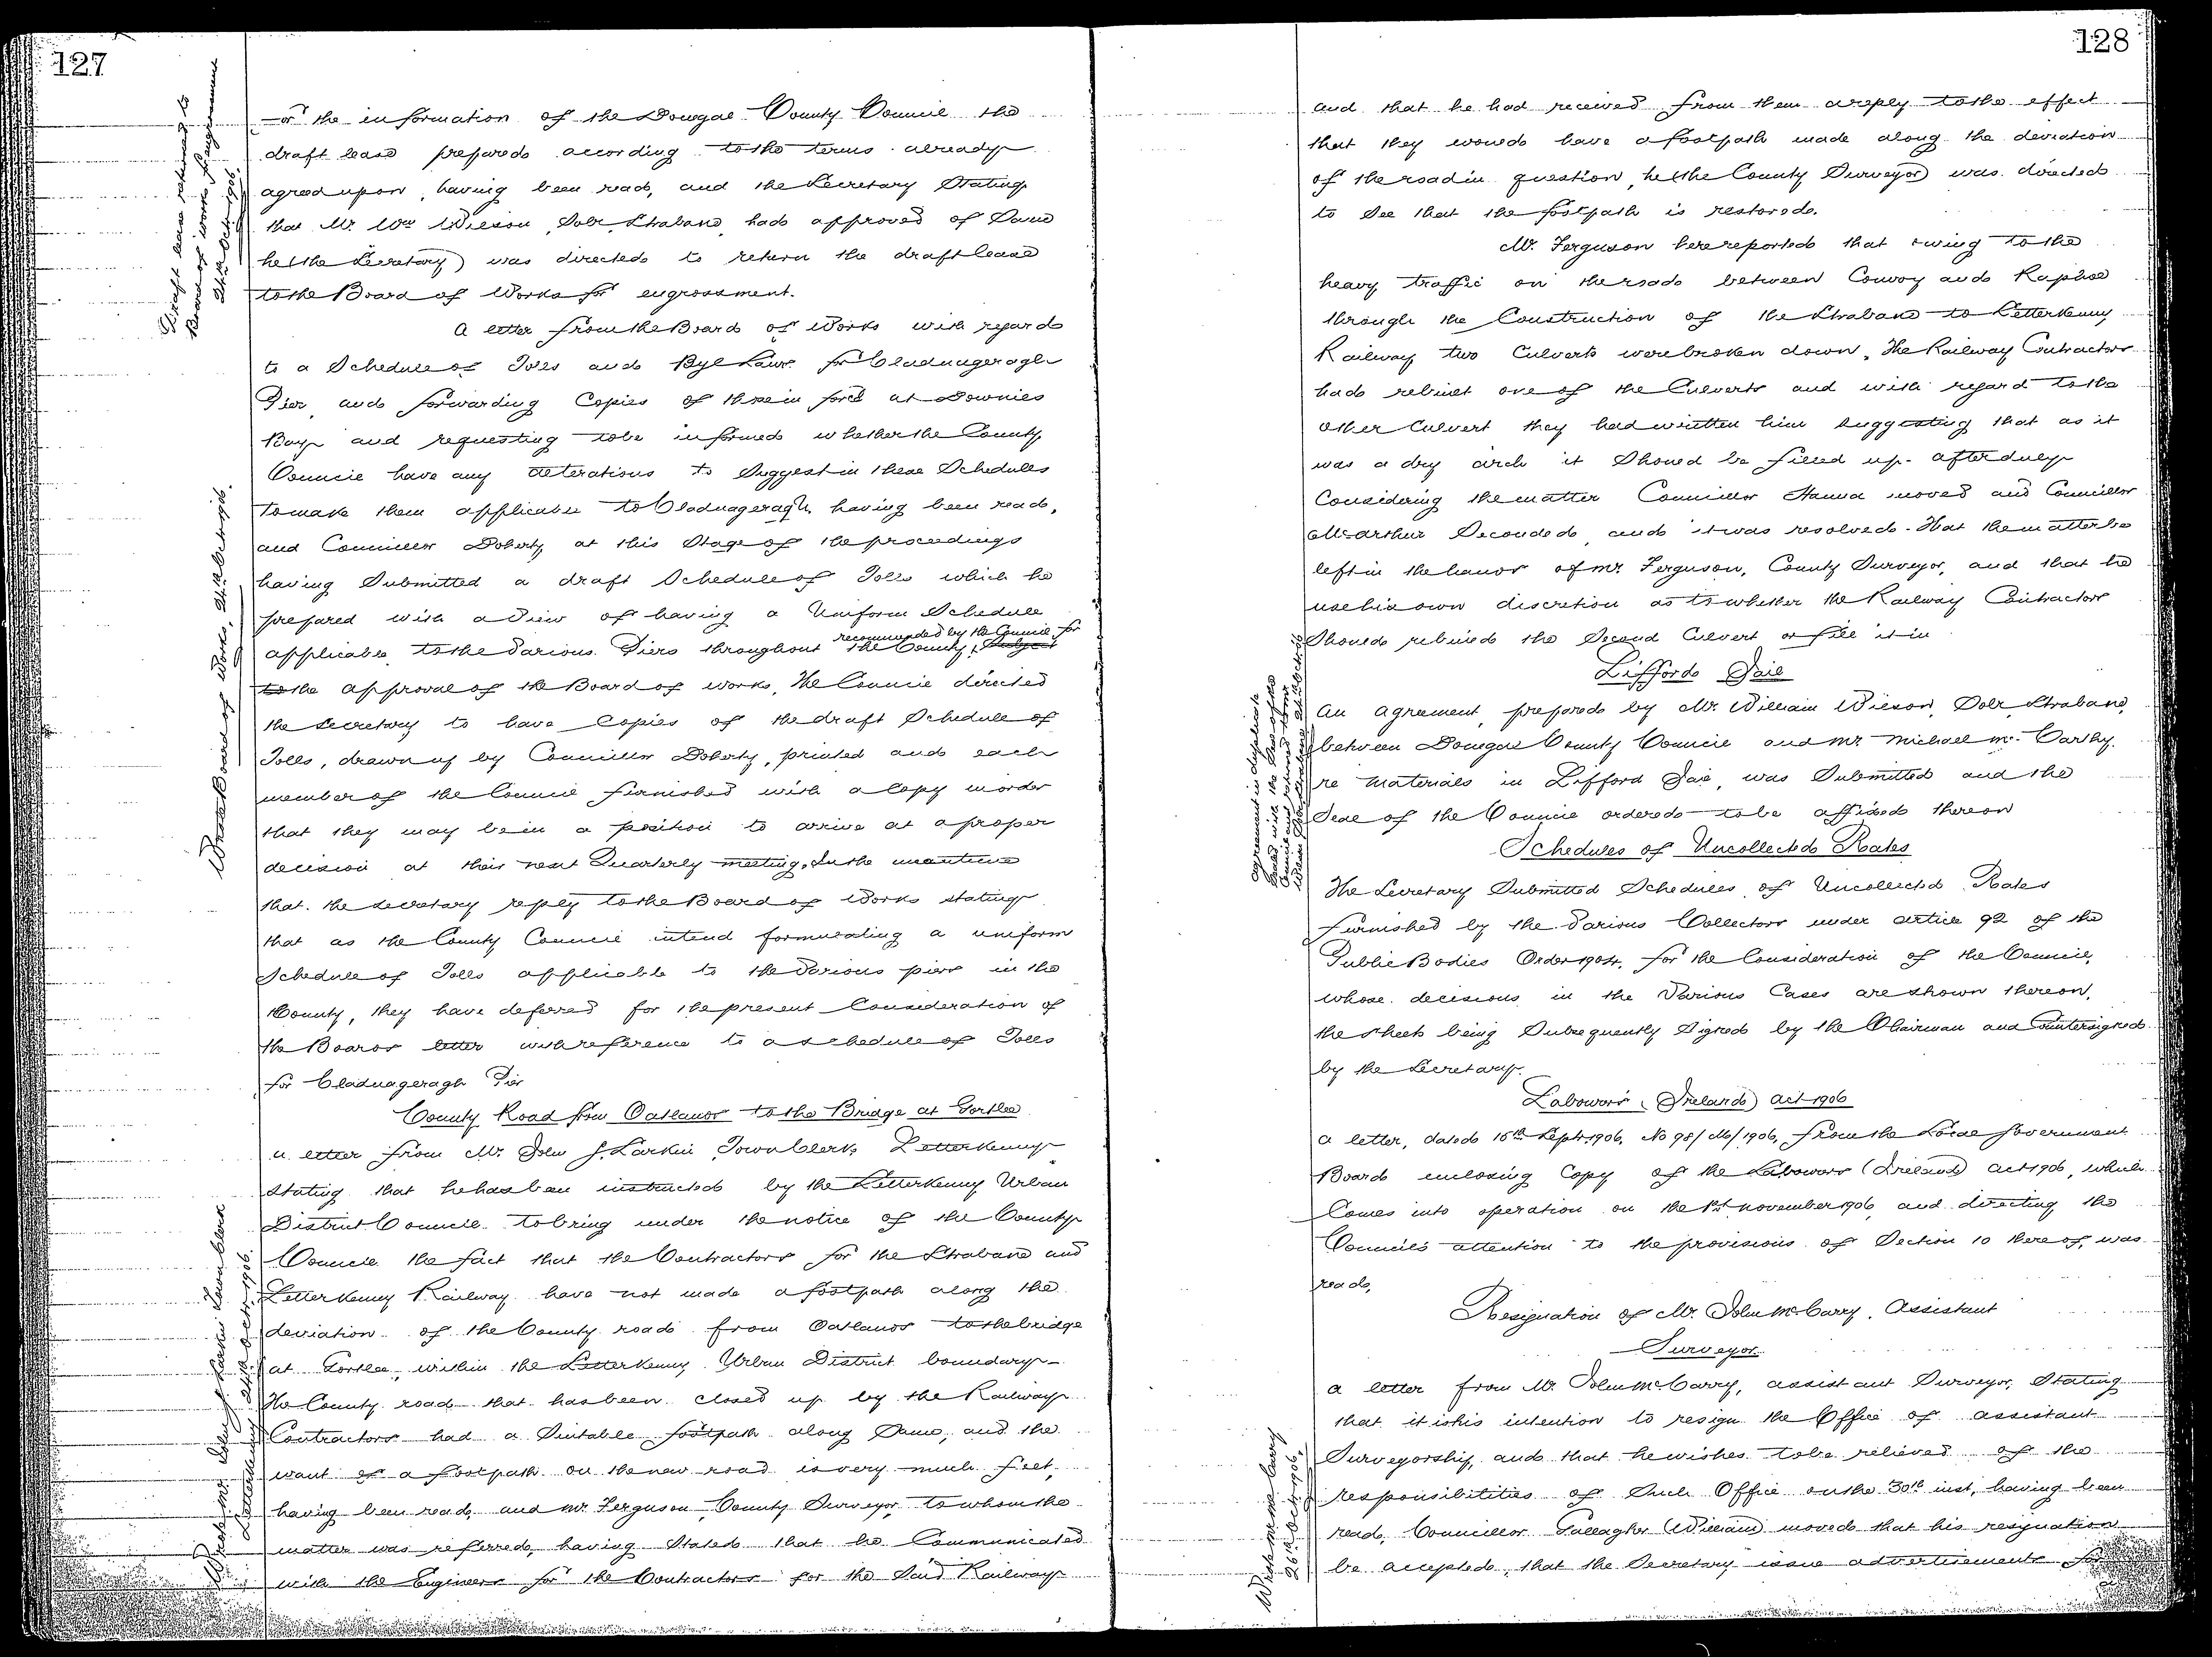 127
Draft lease returned to
Board of Works for engrossment
24th Octr. 1906.
for the information of the Donegal County Council the
draft lease prepared according to the terms already
agreed upon, having been read, and the Secretary Stating
that Mr. Wm Wilson, Solr, Strabane, had approved of Same
he (the Secretary) was directed to return the draft lease
to the Board of Works for engrossment.
A letter from the Board of Works with regard
to a Schedule of Tolls and Bye Laws for Cladnageragh
Pier, and forwarding Copies of those in force at Downies
Bay and requesting to be informed whether the County
Council have any alterations to Suggest in these Schedules
to make them applicable to Cladnageragh, having been read,
and Councillor Doherty at this Stage of the proceedings
having Submitted a draft Schedule of Tolls which he
prepared with a View of having a Uniform Schedule
recommended by the Council for
applicable to the Various Piers throughout the County, Subject
to the approval of the Board of Works, The Council directed
the Secretary to have Copies of the draft Schedule of
Tolls, drawn up by Councillor Doherty, printed and each
member of the Council furnished with a Copy in order
that they may be in a position to arrive at a proper
decision at their next Quarterly meeting. In the meantime
that the Secretary reply to the Board of Works stating
that as the County Council intend formulating a uniform
Schedule of Tolls applicable to the Various piers in the
County, they have deferred for the present Consideration of
the Boards letter with reference to a schedule of Tolls
for Cladnageragh Pier
Wrote Board of Works, 24th Octr. 1906.
County Road from Oatlands to the Bridge at Gortlee
a letter from Mr. John J. Larkin, Town Clerk, Letterkenny
Stating that he has been instructed by the Letterkenny Urban
District Council to bring under the notice of the County
Council the fact that the Contractors for the Strabane and
Letterkenny Railway have not made a footpath along the
deviation of the County road from Oatlands to the bridge
at Gortlee, within the Letterkenny Urban District boundary
The County road that has been closed up by the Railway
Contractors had a Suitable footpath along Same, and the
want of a footpath on the new road is very much felt,
having been read, and Mr. Ferguson, County Surveyor, to whom the
matter was referred, having Stated that he Communicated
with the Engineer for the Contractors for the Said Railway
Wrote Mr. John J. Larkin Town Clerk
Letterkenny 24th Octr. 1906.
128
and that he had received from them a reply to the effect
that they would have a footpath made along the deviation
of the road in question, he (the County Surveyor) was directed
to See that the footpath is restored.
Mr. Ferguson here reported that owing to the
heavy traffic on the road between Convoy and Raphoe
through the Construction of the Strabane to Letterkenny
Railway two Culverts were broken down. The Railway Contractors
had rebuilt one of the Culverts and with regard to the
other Culvert they had written him Suggesting that as it
was a dry arch it Should be filled up. After duly
Considering the matter Councillor Hanna moved and Councillor
McArthur Seconded, and it was resolved - That the matter be
left in the hands of Mr. Ferguson, County Surveyor, and that he
use his own discretion as to whether the Railway Contractors
Should rebuild the Second Culvert or fill it in
Lifford Jail
An agreement, prepared by Mr. William Wilson, Solr, Strabane,
between Donegal County Council and Mr. Michael McCarthy.
re materials in Lifford Jail, was Submitted and the
Seal of the Council ordered to be affixed thereon
agreement in duplicate
Sealed with the Seal of the
Council and returned to Mr
Schedules of Uncollected Rates
The Secretary Submitted Schedules of Uncollected Rates
furnished by the Various Collectors under article 92 of the
Public Bodies Order 1904, for the Consideration of the Council,
whose decisions in the Various Cases are shown thereon,
the sheets being Subsequently Signed by the Chairman and Countersigned
by the Secretary.
Labourers (Ireland) Act 1906
a letter, dated 15th Septr. 1906, No 98/M/1906, from the Local Government
Board enclosing Copy of the Labourers (Ireland) Act 1906, which
Comes into operation on the 1st November 1906, and directing the
Council's attention to the provisions of Section 10 thereof, was
read,
Resignation of Mr. John McCarry, Assistant
Surveyor
a letter from Mr. John McCarry, assistant Surveyor, Stating
that it is his intention to resign the Office of assistant
Surveyorship, and that he wishes to be relieved of the
responsibilities of Such Office on the 30th inst, having been
read, Councillor Gallagher (William) moved that his resignation
be accepted, that the Secretary issue advertisements for
Wrote Mr McCarry
26th Octr. 1906.